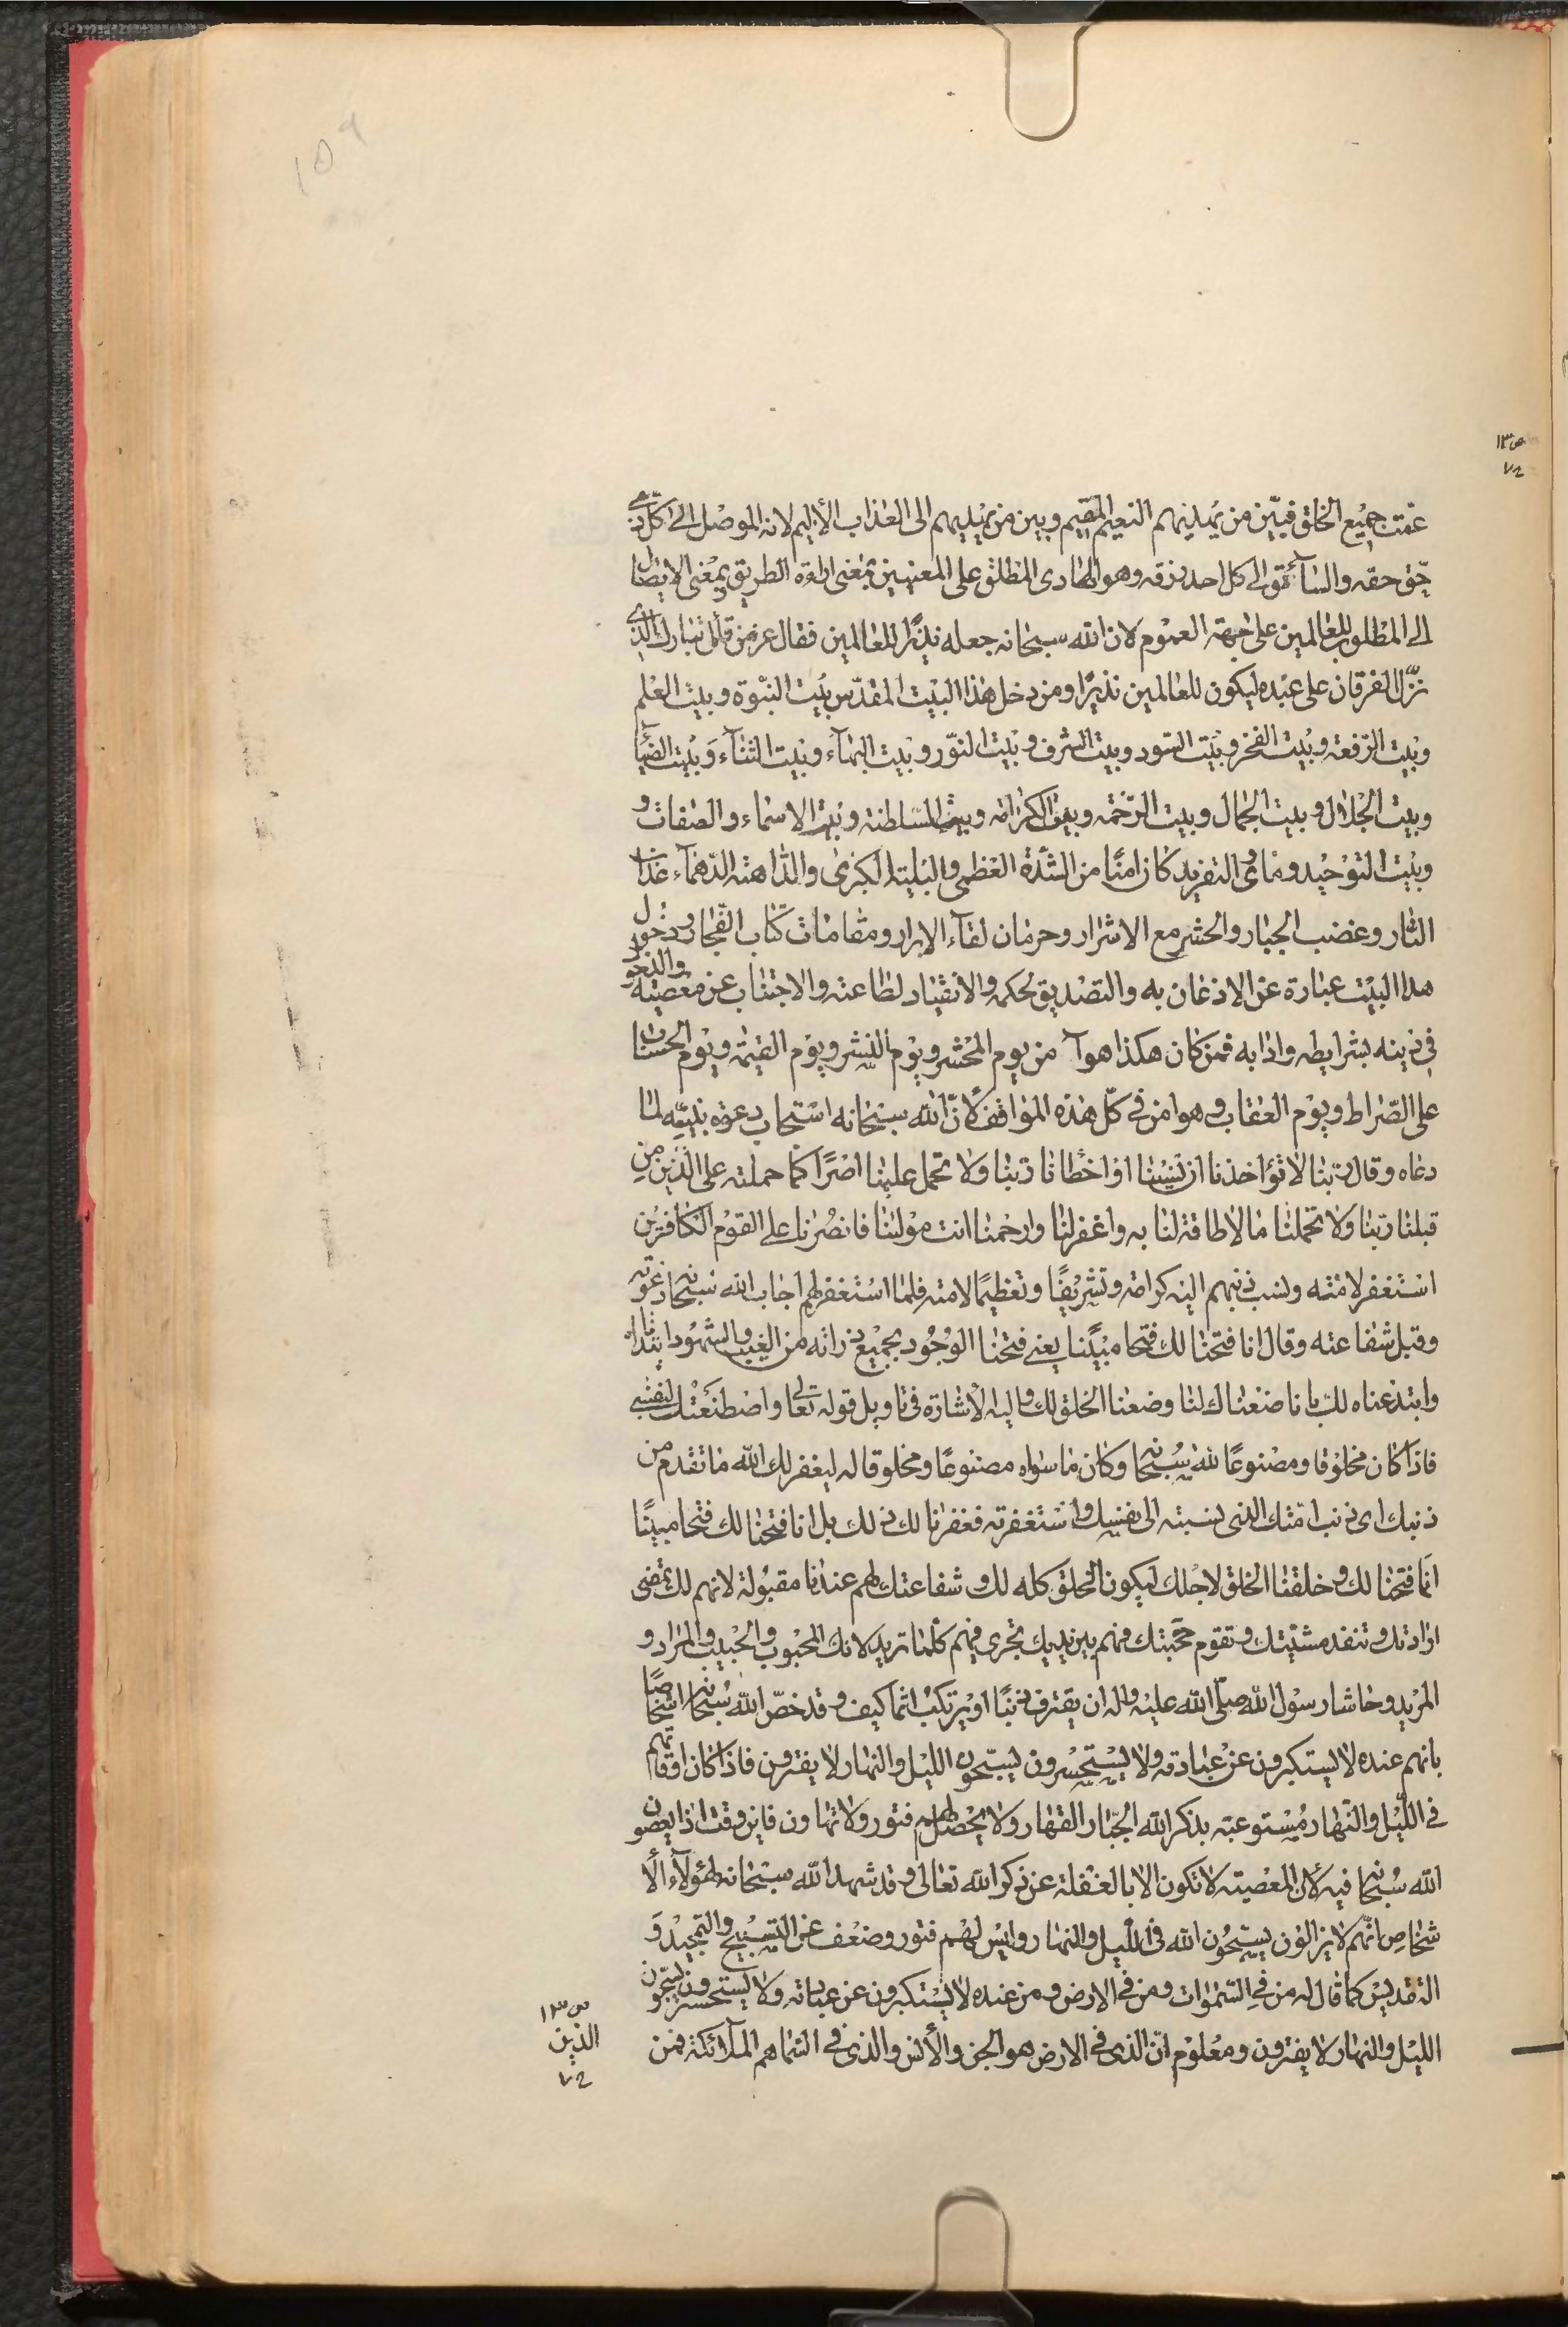 ١٥٩
ص١٣
٧٢
عمّت جميع الخلق فبيّن من يميلنهم النعيم المقيم وبين من يميلهم الى العذاب الأليم لانه الموصل الى كلّ ذى
حقّ حقه والسائق الى كل احد رزقه وهو الهادى المطلق على المعنيين بمعنى اراءة الطريق وبمعنى الايصال
الى المطلوب للعالمين على جهة العموم لان الله سبحانه جعله نذيرًا للعالمين فقال عز من قائل تبارك الذى
نزّل الفرقان على عبده ليكون للعالمين نذيرًا ومن دخل هذا البيت المقدّس بيت النبوّة وبيت العلم
وبيت الرّفعة وبيت الفخر وبيت السّود وبيت الشرف وبيت النّور وبيت البهآء وبيت الثنآء وَبيت الضيآء
وبيت الجلال وبيت الجمال وبيت الرّحمة وبيت الكرامة وبيت السّلطنة وبيت الاسماء والصفات و
وبيت التوحيد وماوى التفريد كان امنًا من الشدّة العظمى والبليّة الكبرى والدّاهية الدّهمآء عذاب
النّار وغضب الجبار والحشر مع الاشرار وحرمان لقآء الابرار ومقامات كتاب الفجّار ودخول
هذا البيت عبارة عن الاذعان به والتصديق لحكمه والانقياد لطاعته والاجتناب عن معصيته والدخول
فى دينه بشرايطه وادابه فمن كان هكذا هو آمن يوم المحشر ويوم النشر ويوم القيمة ويوم الحساب
على الصّراط ويوم العقاب وهو امن فى كلّ هذه المواقف لانّ الله سبحانه استجاب دعوة نبيّه لما
دعاه وقال ربّنا لا تؤاخذنا ان نسينا او اخطأنا ربّنا ولا تحمل علينا اصرًا كما حملته على الّذين مِن
قبلنا ربّنا ولا تحملنا ما لا طاقة لنا به واغفر لنا وارحمنا انت مولينا فانصُرنا على القوم الكافرين
استغفر لامّته ونسب ذنبهم اليه كرامة وتشريفًا وتعظيمًا لامته فلما استغفر لهم اجاب الله سبحانه دعوته
وقبل شفاعته وقال انا فتحنا لك فتحا مبيّنا يعنى فتحنا الوجُود بجميع ذراته من الغيب والشهود ابتداءً
وابتدعناه لك بانا صنعناك لنا وصنعنا الخلق لك واليه الاشارة فى تاويل قوله تعالى واصطنعتك لنفسى
فاذا كان مخلوقا ومصنوعًا لله سُبحانه وكان ما سواه مصنوعًا ومخلوقا له ليغفر لك الله ما تقدم من
ذنبك اى ذنب امّتك الذى نسبته الى نفسك واستغفرته فغفرنا لك ذلك بل انا فتحنا لك فتحا مبيّنًا
انما فتحنا لك وخلقنا الخلق لاجلك ليكون الخلق كله لك وشفاعتك لهم عندنا مقبولة لانهم لك تمضى
ارادتك وتنفذ مشيّتك وتقوم حجّتك فهم بين يديك تجرى فيهم كلما تريد لانك المحبوب والحبيب والمراد و
المريد وحاشا رسول الله صلّى الله عليه واله ان يقترف ذنبًا او يرتكب اثما كيف وقد خصّ الله سُبحانه اشخاصًا
بانهم عنده لا يستكبرون عن عبادته ولا يستحسرون يسبّحون الليل والنهار لا يفترون فاذا كان اوقاتهم
فى اللّيل والنّهار مُستوعبة بذكر الله الجبّار القهّار ولا يحصل لهم فتور ولا تهاون فاين وقت اذًا يعصون
الله سُبحانه فيه لأن المعصية لا تكون الا بالغفلة عن ذكر الله تعالى وقد شهد الله سبحانه لهؤلآء الأ
شخاص انّهم لا يزالون يسبّحون الله فى اللّيل والنهار وليس لهم فتور وضعف عن التّسبيح والتمجيد وَ
التقديس كما قال له من فى السّموات ومن فى الارض ومن عنده لا يستكبرون عن عبادته ولا يستحسرون يسبّحون
الليل والنهار لا يفترون ومعلوم انّ الذى فى الارض هو الجن والأنس والذى فى السّما هم الملآئكة فمن
ص ١٣
الذين
٧٢